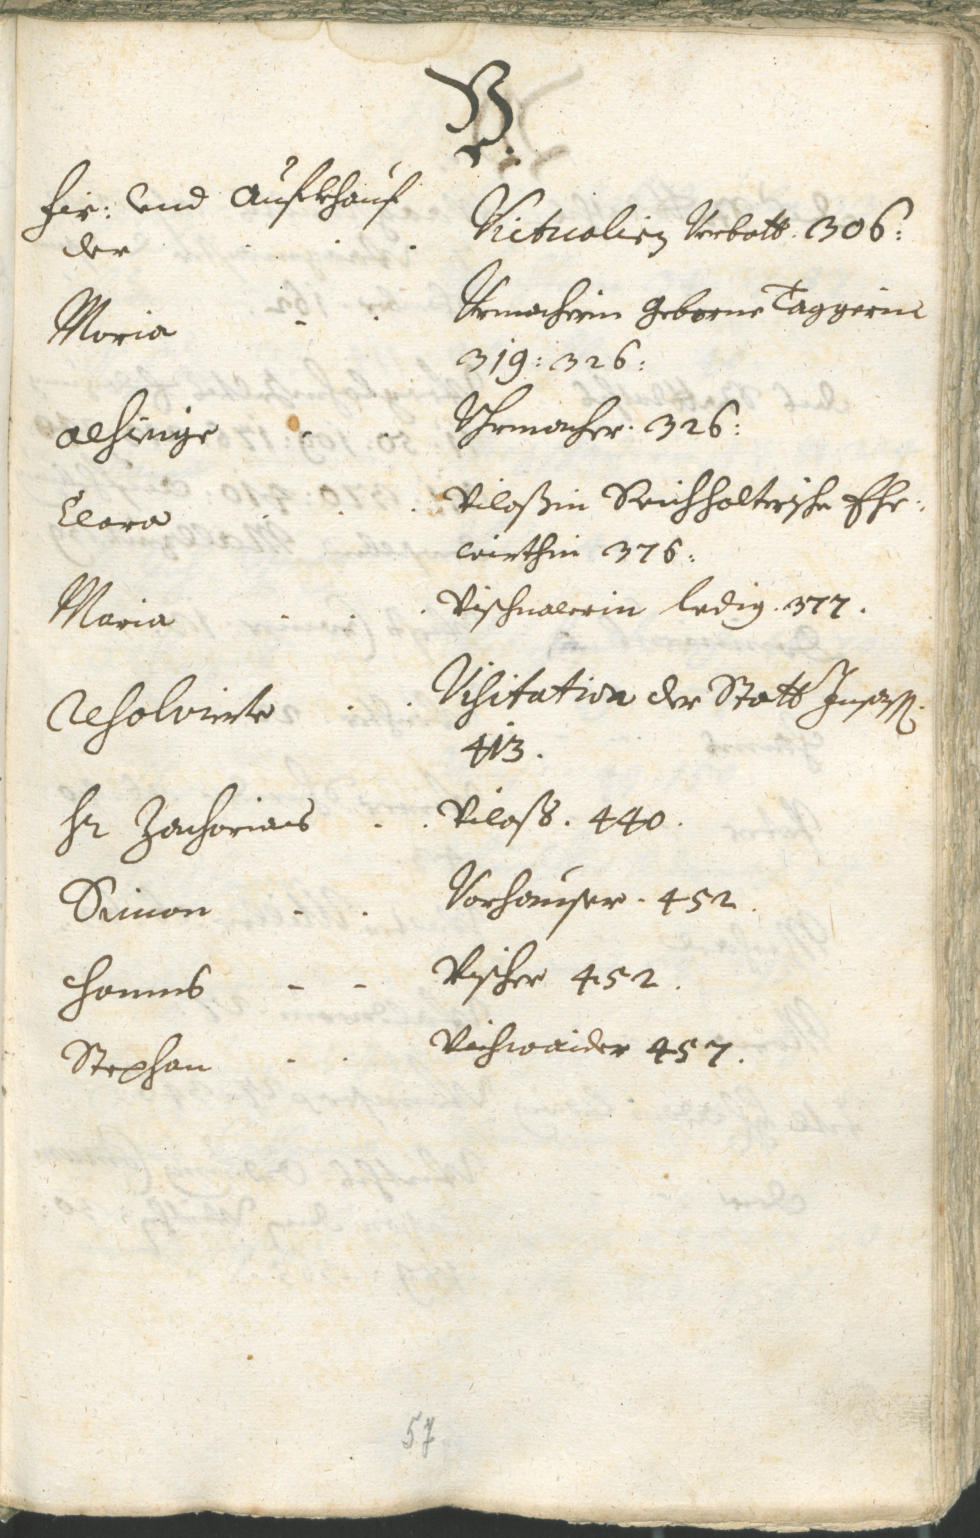 V.
Für: und Auffkhauf
der . . . Victualien Verbott. 306:
Maria - . Urmacherin geborne Taggerin
319: 326:
alhieige . . Uhrmacher. 326:
Clara . . . Vilaßin Reichhalterische Ehe:
wirthin 376:
Maria . . . Vischnalerin ledig. 377.
Resolvierte . . Visitation der Statt Insass:
413.
Hr Zacharias . . Vilaß. 440.
Simon - . Vorhauser. 452.
Hanns - - Vischer 452.
Stephan - . Vichwaider 457.
57